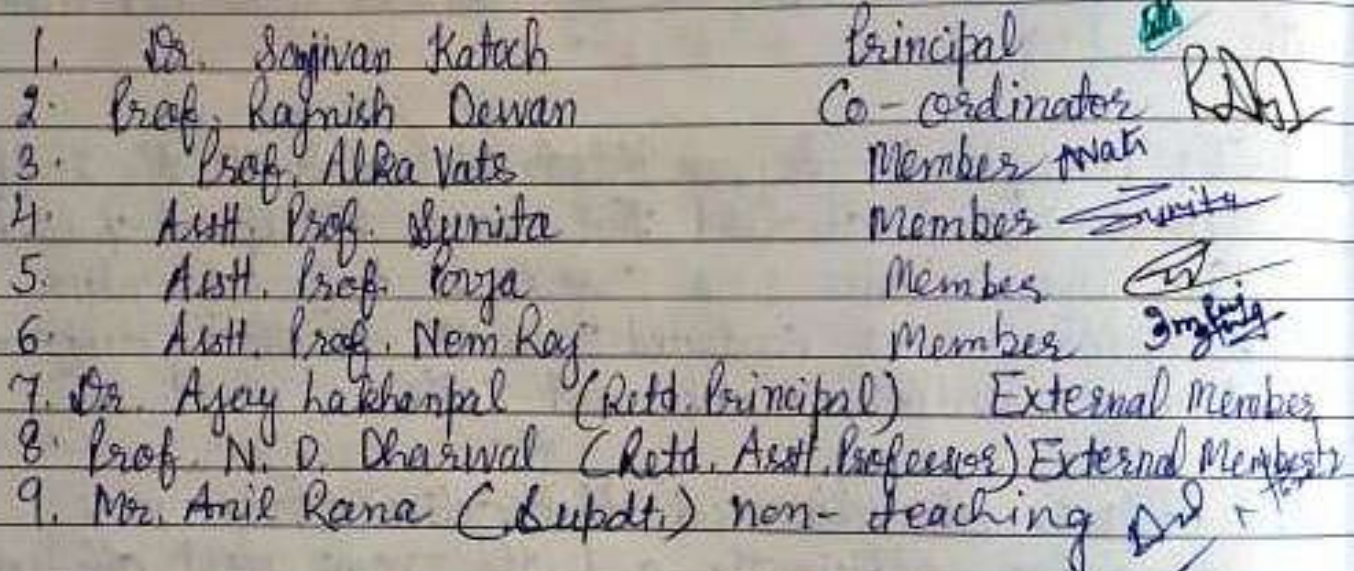 1. Dr. Sanjivan Katoch Principal
2. Prof. Rajnish Dewan Co-ordinator
3. Prof. Alka Vats Member
4. Astt. Prof. Sunita Member Sunita
5. Astt. Prof. Pooja Member
6. Astt. Prof. Nem Raj Member
7. Dr. Ajay Lakhanpal (Retd. Principal) External Member
8. Prof. N. D. Dharwal (Retd. Astt. Professor) External Member
9. Mr. Anil Rana (Supdt.) non-teaching